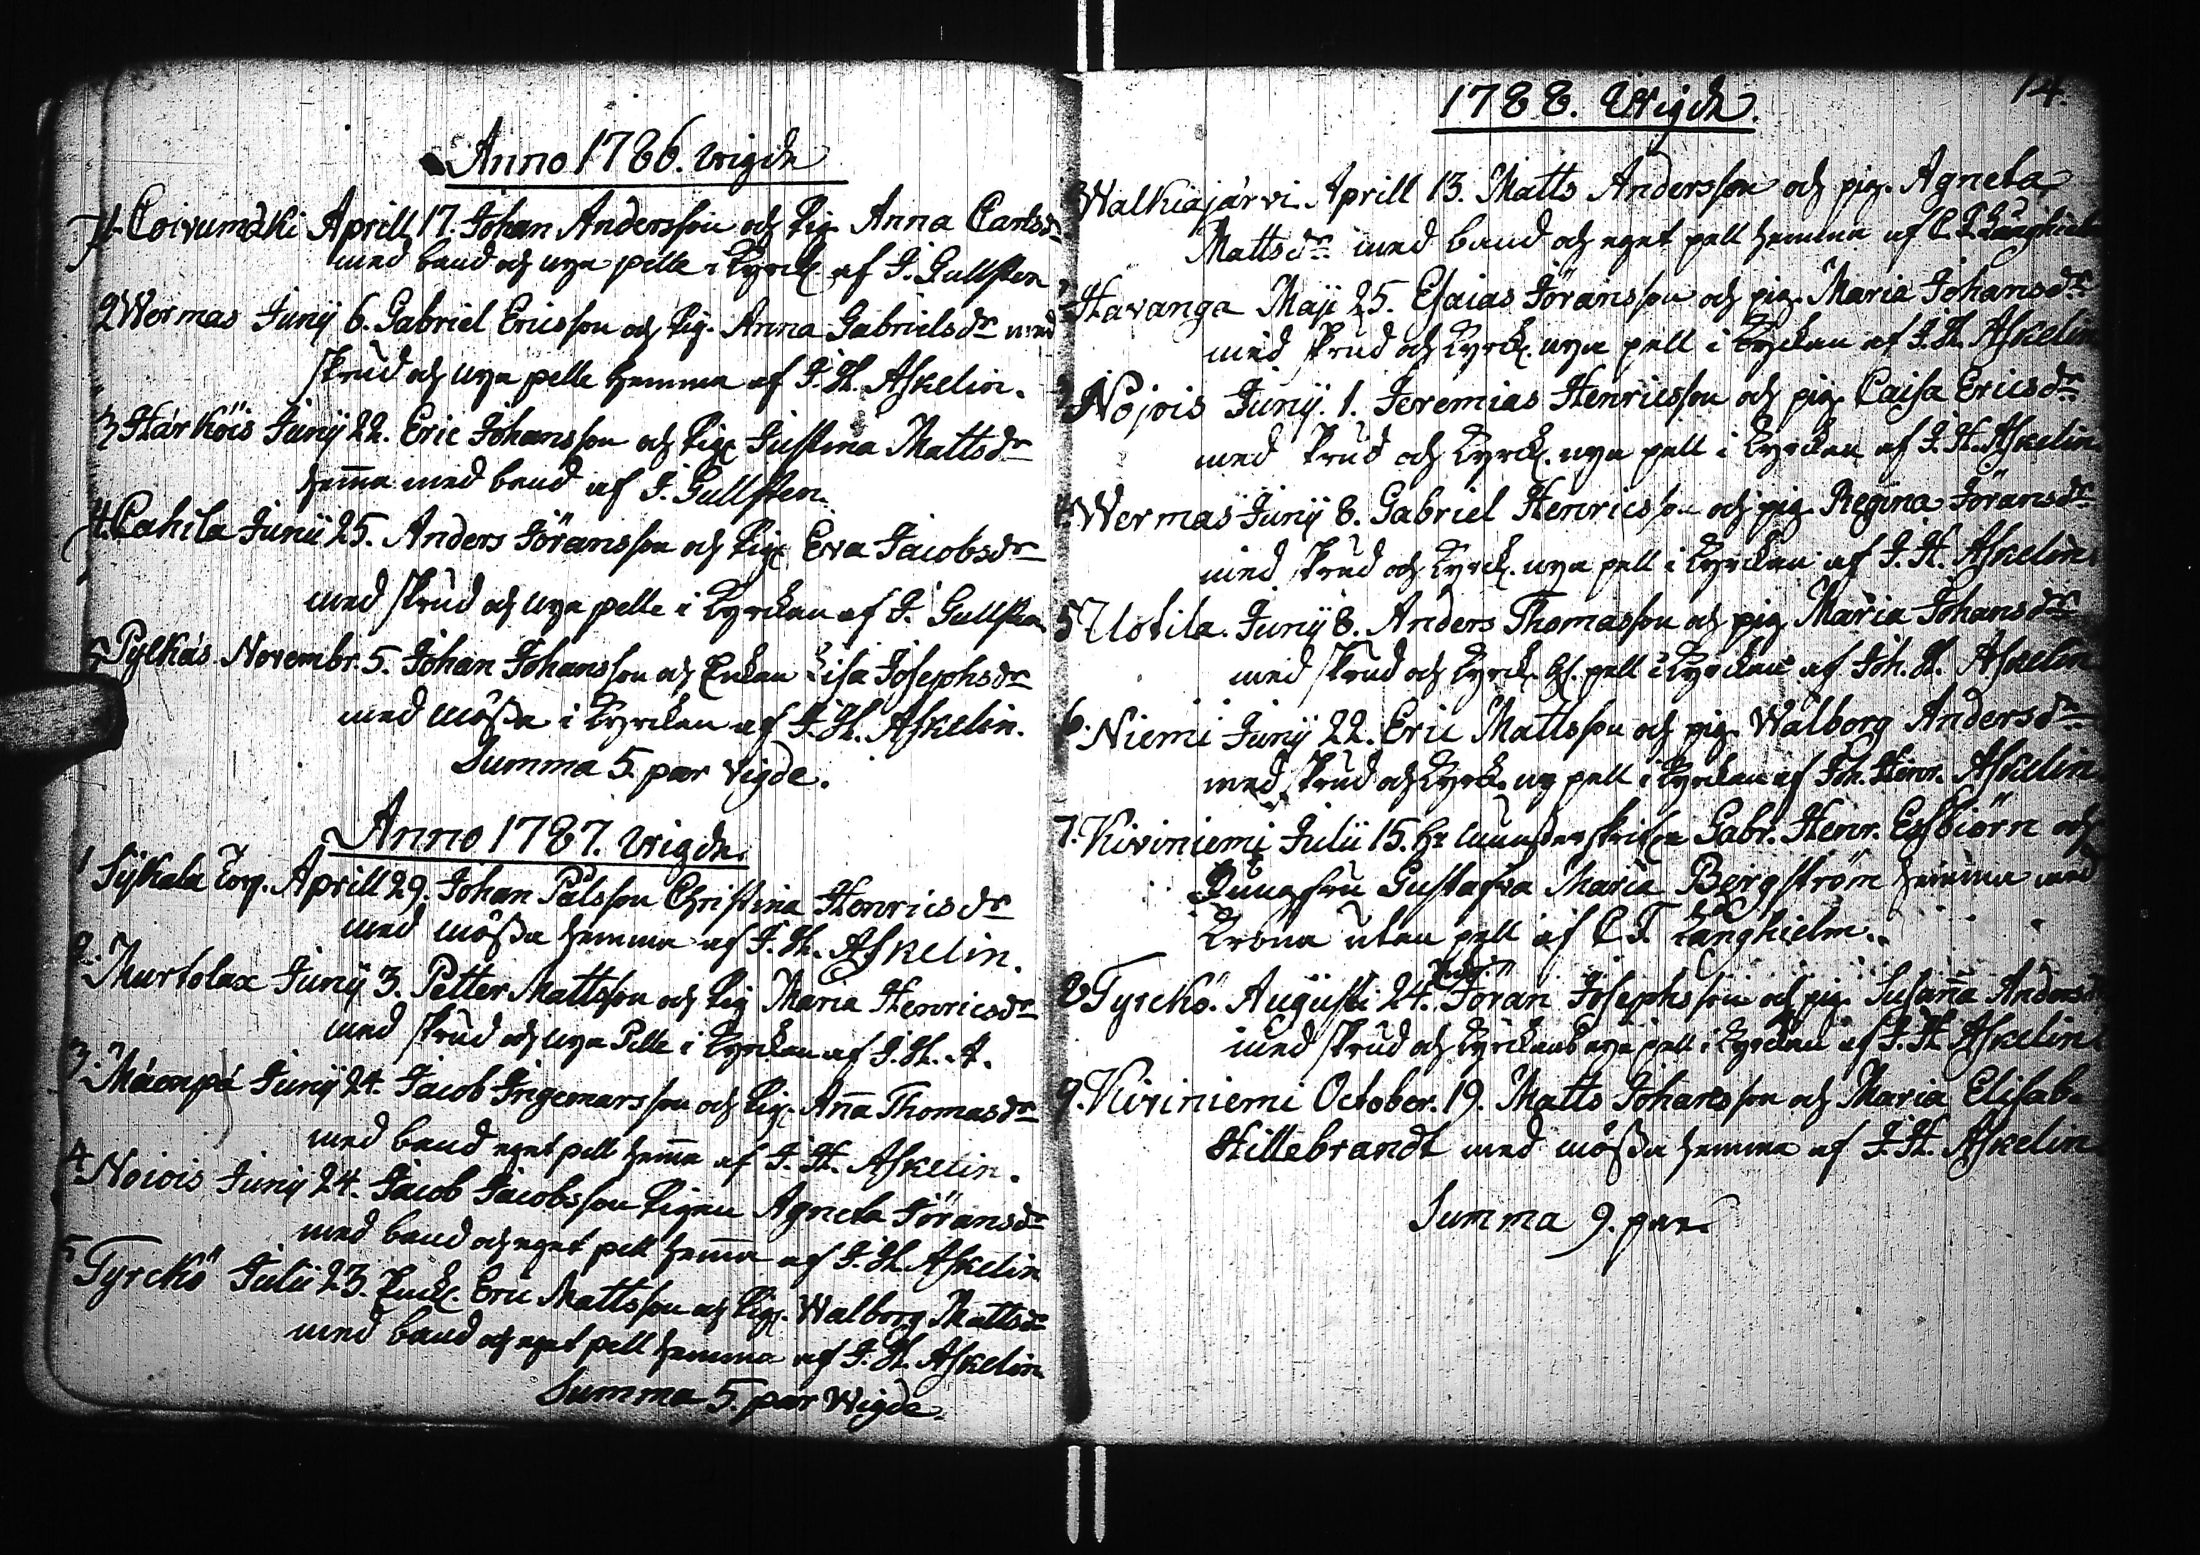 Anno 1786. wigde
1. Coivumäki Aprill 17. Johan Andersson och Pig. Anna Carlsdr
med band och nya pelle i Kyrck. af J. Gullsten
2 Wermas Junij 6. Gabriel Ericsson och Pig. Anna Gabrielsdr med
skrud och nya pelle hemma af J. H. Askelin.
3 Härköis Junij 22. Eric Johansson och Pig. Justina Mattsdr
hem̄a med band af J. Gullsten.
4. Cahila Junii 25. Anders Jöransson och Pig. Eva Jacobsdr
med skrud och nya pelle i Kyrckan af J. Gullsten
5 Pylkäs Novembr. 5. Johan Johansson och Enkan Lisa Josephsdr
med mössa i Kyrckan af J. H. Askelin.
Summa 5. par vigde.
Anno 1787. wigde.
1 Sykala Torp. Aprill 29. Johan Pålsson Christina Henricsdr
med mössa hemma af J. H. Askelin.
2. Murtolax Junij 3. Petter Mattsson och Pig Maria Henricsdr
med skrud och nya Pelle i Kyrckan af J. H. A.
3. Junij 24. Jacob Ingemarsson och Pig. An̄a Thomasdr
med band eget pell hem̄a af J. H. Askelin.
4 Noiois Junij 24. Jacob Jacobsson Pigan Agneta Jöransdr
med band och eget pell hem̄a af J. H. Askelin
5 Tyrckö Julii 23. Enckl. Eric Mattsson och Pig. Walborg Mattsdr
med band och eget pell hemma af J. H. Askelin
Summa 5. par Wigde.
14.
1788. Wigde.
Walkiajärvi Aprill 13. Matts Andersson och pig. Agneta
Mattsdr med band och eget pell hemma af C. F. Långhielm
Havanga Maji 25. Esaias Jöransson och pig. Maria Johansdr
med skrud och Kyrck. nya pell i Kyrckan af J. H. Askelin
3 Nojois Junij. 1. Jeremias Henricsson och pig. Caisa Ericsdr
med skrud och Kyrck. nya pell i Kyrckan af J. H. Askelin
4. Wermas Junij 8. Gabriel Henricsson och pig. Regina Jöransdr
med skrud och Kyrck. nya pell i Kyrckan af J. H. Askelin
5 Uotila. Junij 8. Anders Thomasson och pig Maria Johansdr
med skrud och Kyrck. pell i Kyrckan af Joh. H. Askelin
6. Niemi Junij 22. Eric Mattsson och pig. Walborg Andersdr
med skrud och Kyrck. ny pell i Kyrckan af Joh. Henr. Askelin
7. Kiviniemi Julii 15. Hr Gabr. Henr. Essbiörn och
Jungfru Gustafva Maria Bergström hemma med
Krona utan pell af C F. Långhielm.
8 Tyrckö. Augusti 24. Jöran Josephsson och pig. Susan̄a Andersdr
med skrud och Kyrckans nya pell i Kyrckan af J. H. Askelin
9. Kiviniemi October. 19. Matts Johansson och Maria Elisab.
Hillebrandt med mössa hemma af J. H. Askelin
Summa 9. par.